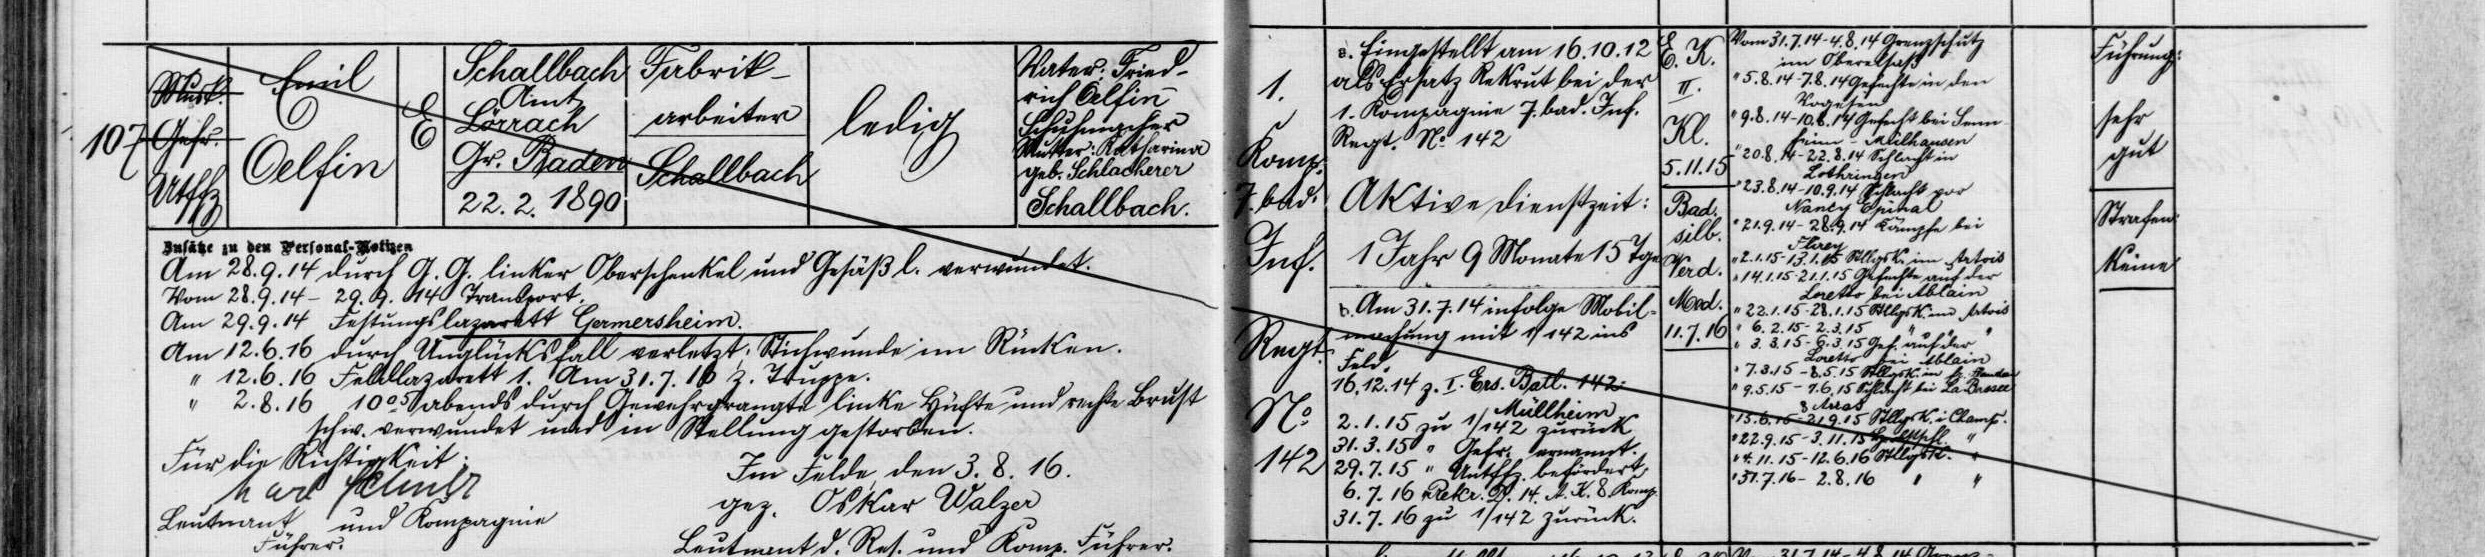 107
Musk.
Gefr.
Utffz
Emil
Oelfin
E
Schallbach
Amt
Lörrach
Gr. Baden
22. 2. 1890
Fabrik-
arbeiter
Schallbach
ledig
Vater: Fried-
rich Oelfin
Schuhmacher
Mutter: Katharina
geb. Schlacherer
Schallbach.
Zusätze zu den Personal-Notizen
Am 28.9.14 durch G. G. linker Oberschenkel und Gesäß l. verwundet.
Vom 28.9.14 - 29.9.14 Transport.
Am 29.9.14 Festungslazarett Germersheim.
Am 12.6.16 durch Unglücksfall verletzt; Stichwunde im Rücken.
" 12.6.16 Feldlazarett 1. Am 31.7.16 z. Truppe.
" 2.8.16 10⁰⁵ abends durch Gewehrgranate linke Hüfte und rechte Brust
schw. verwundet und in Stellung gestorben.
Für die Richtigkeit:
Leutnant und Kompagnie
Führer.
Im Felde, den 3. 8. 16.
gez. Oskar Walzer
Leutnant d. Res. und Komp. Führer.
1.
Komp.
7. bad.
Inf.
Regt.
No
142
a. Eingestellt am 16.10.12
als Ersatz Rekrut bei der
1. Kompagnie 7. bad. Inf.
Regt. No 142
Aktive Dienstzeit:
1 Jahr 9 Monate 15 Tge
b. Am 31.7.14 infolge Mobil-
machung mit 1/142 ins
Feld.
16.12.14 z. I. Ers. Batl. 142
Müllheim
2.1.15 zu 1/142 zurück
31.3.15 " Gefr. ernannt.
29.7.15 " Untffz. befördert
6.7.16 Rekr. D. 14. A. K. 8. Komp.
31.7.16 zu 1/142 zurück.
E. K.
II.
Kl.
5.11.15
Bad.
silb.
Verd.
Med.
11.7.16
Vom 31.7.14-4.8.14 Grenzschutz
im Oberelsaß
" 5.8.14-7.8.14 Gefechte in den
Vogesen
" 9.8.14-10.8.14 Gefecht bei Senn-
heim - Mülhausen
" 20.8.14-22.8.14 Schlacht in
Lothringen
" 23.8.14-10.9.14 Schlacht vor
Nancy Epinal
" 21.9.14-28.9.14 Kämpfe bei
Flirey
" 2.1.15-13.1.15 Stllgsk. im Artois
" 14.1.15-21.1.15 Gefechte auf der
Loretto bei Ablain
" 22.1.15-28.1.15 Stllgsk. im Artois
" 6.2.15-2.3.15 " " "
" 3.3.15-6.3.15 Gef. auf der
Loretto bei Ablain
" 7.3.15-8.5.15 Stllgsk. in
" 9.5.15-7.6.15 Schlacht bei La Bassee
& Arras
" 15.6.15-21.9.15 Stllgsk. i. Champ.
" 22.9.15-3.11.15 Herbstschl. "
" 4.11.15-12.6.16 Stllgsk. "
" 31.7.16-2.8.16 " "
Führung:
sehr
gut
Strafen:
Keine